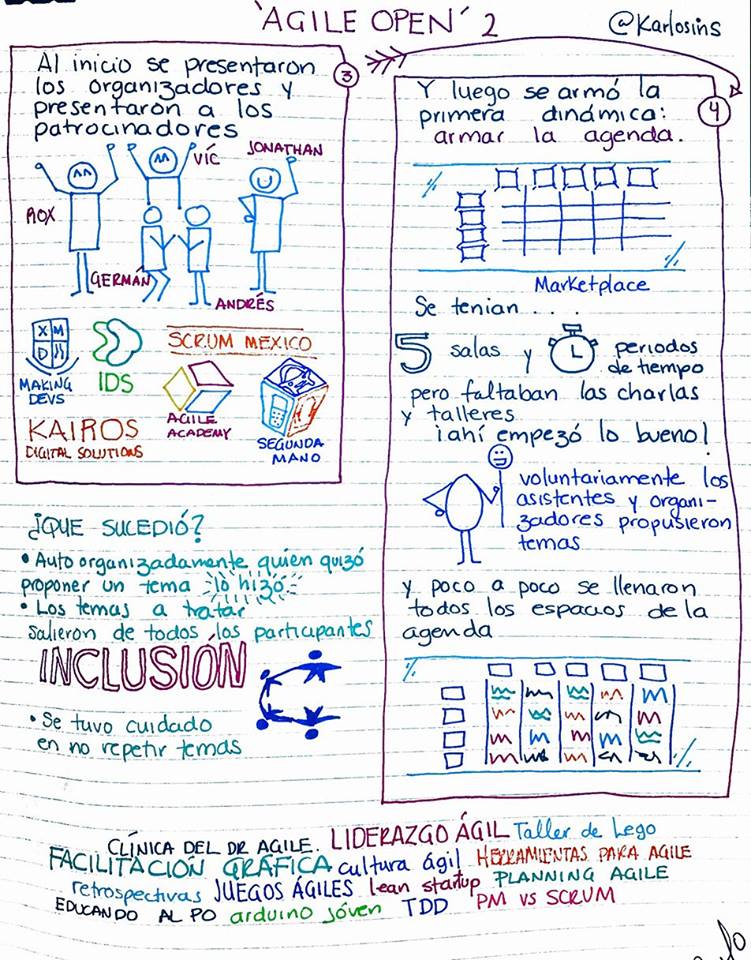 'AGILE OPEN' 2
@Karlosins
3
Al inicio se presentaron
los organizadores y
presentaron a los
patrocinadores
ROX
VÍC
JONATHAN
GERMÁN
ANDRÉS
XM
D
MAKING
DEVS
IDS
SCRUM MEXICO
AGILE
ACADEMY
SEGUNDA
MANO
KAIROS
DIGITAL SOLUTIONS
¿QUE SUCEDIÓ?
• Auto organizadamente quien quizó
proponer un tema lo hizó
• Los temas a tratar
salieron de todos los participantes
INCLUSIÓN
• Se tuvo cuidado
en no repetir temas
4
Y luego se armó la
primera dinámica:
armar la agenda.
Marketplace
Se tenian . . . .
5 salas y periodos
de tiempo
pero faltaban las charlas
y talleres
¡ahí empezó lo bueno!
voluntariamente los
asistentes y organi-
zadores propusieron
temas
y poco a poco se llenaron
todos los espacios de la
agenda
CLÍNICA DEL DR AGILE. LIDERAZGO ÁGIL Taller de Lego
FACILITACIÓN GRÁFICA cultura ágil HERRAMIENTAS PARA AGILE
retrospectivas JUEGOS ÁGILES lean startup PLANNING AGILE
EDUCANDO AL PO arduino jóven TDD PM VS SCRUM